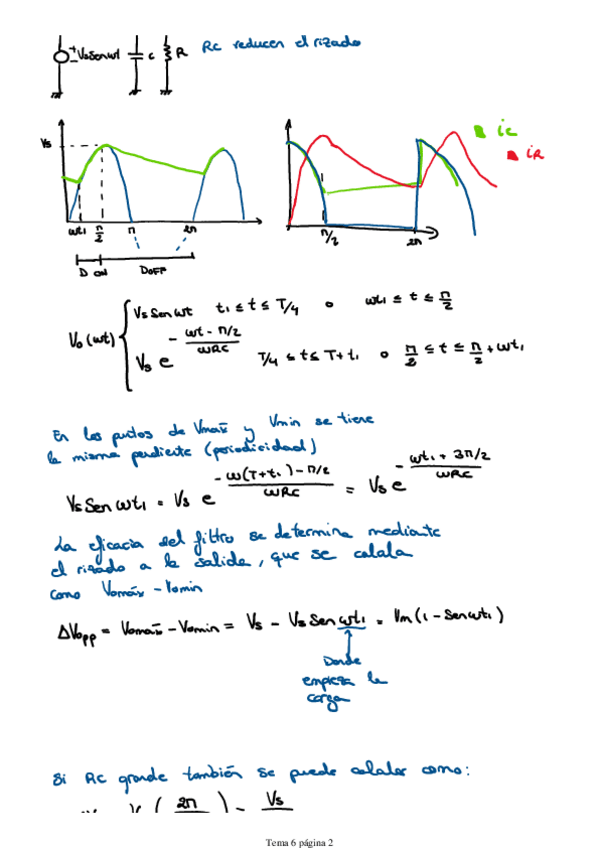 Vs Sen wt
C
R
RC reducen el rizado
Vs
ic
iR
wt1
π/2
π
2π
π/2
2π
D ON
DOFF
Vo (wt) { Vs Sen wt t1 ≤ t ≤ T/4 o wt1 ≤ t ≤ π/2
Vs e^(- (wt - π/2)/(WRC)) T/4 ≤ t ≤ T+t1 o π/2 ≤ t ≤ π/2 + wt1
En los puntos de Vmax y Vmin se tiene
la misma pendiente (periodicidad)
Vs Sen wt1 = Vs e^(- (w(T+t1) - π/2)/(WRC)) = Vs e^(- (wt1 + 3π/2)/(WRC))
La eficacia del filtro se determina mediante
el rizado a la salida, que se calcula
como Vomáx - Vomin
ΔVopp = Vomax - Vomin = Vs - Vs Sen wt1 = Vm (1 - Sen wt1)
Donde
empieza la
carga
Si RC grande también se puede calcular como:
2π
Vs
Tema 6 página 2